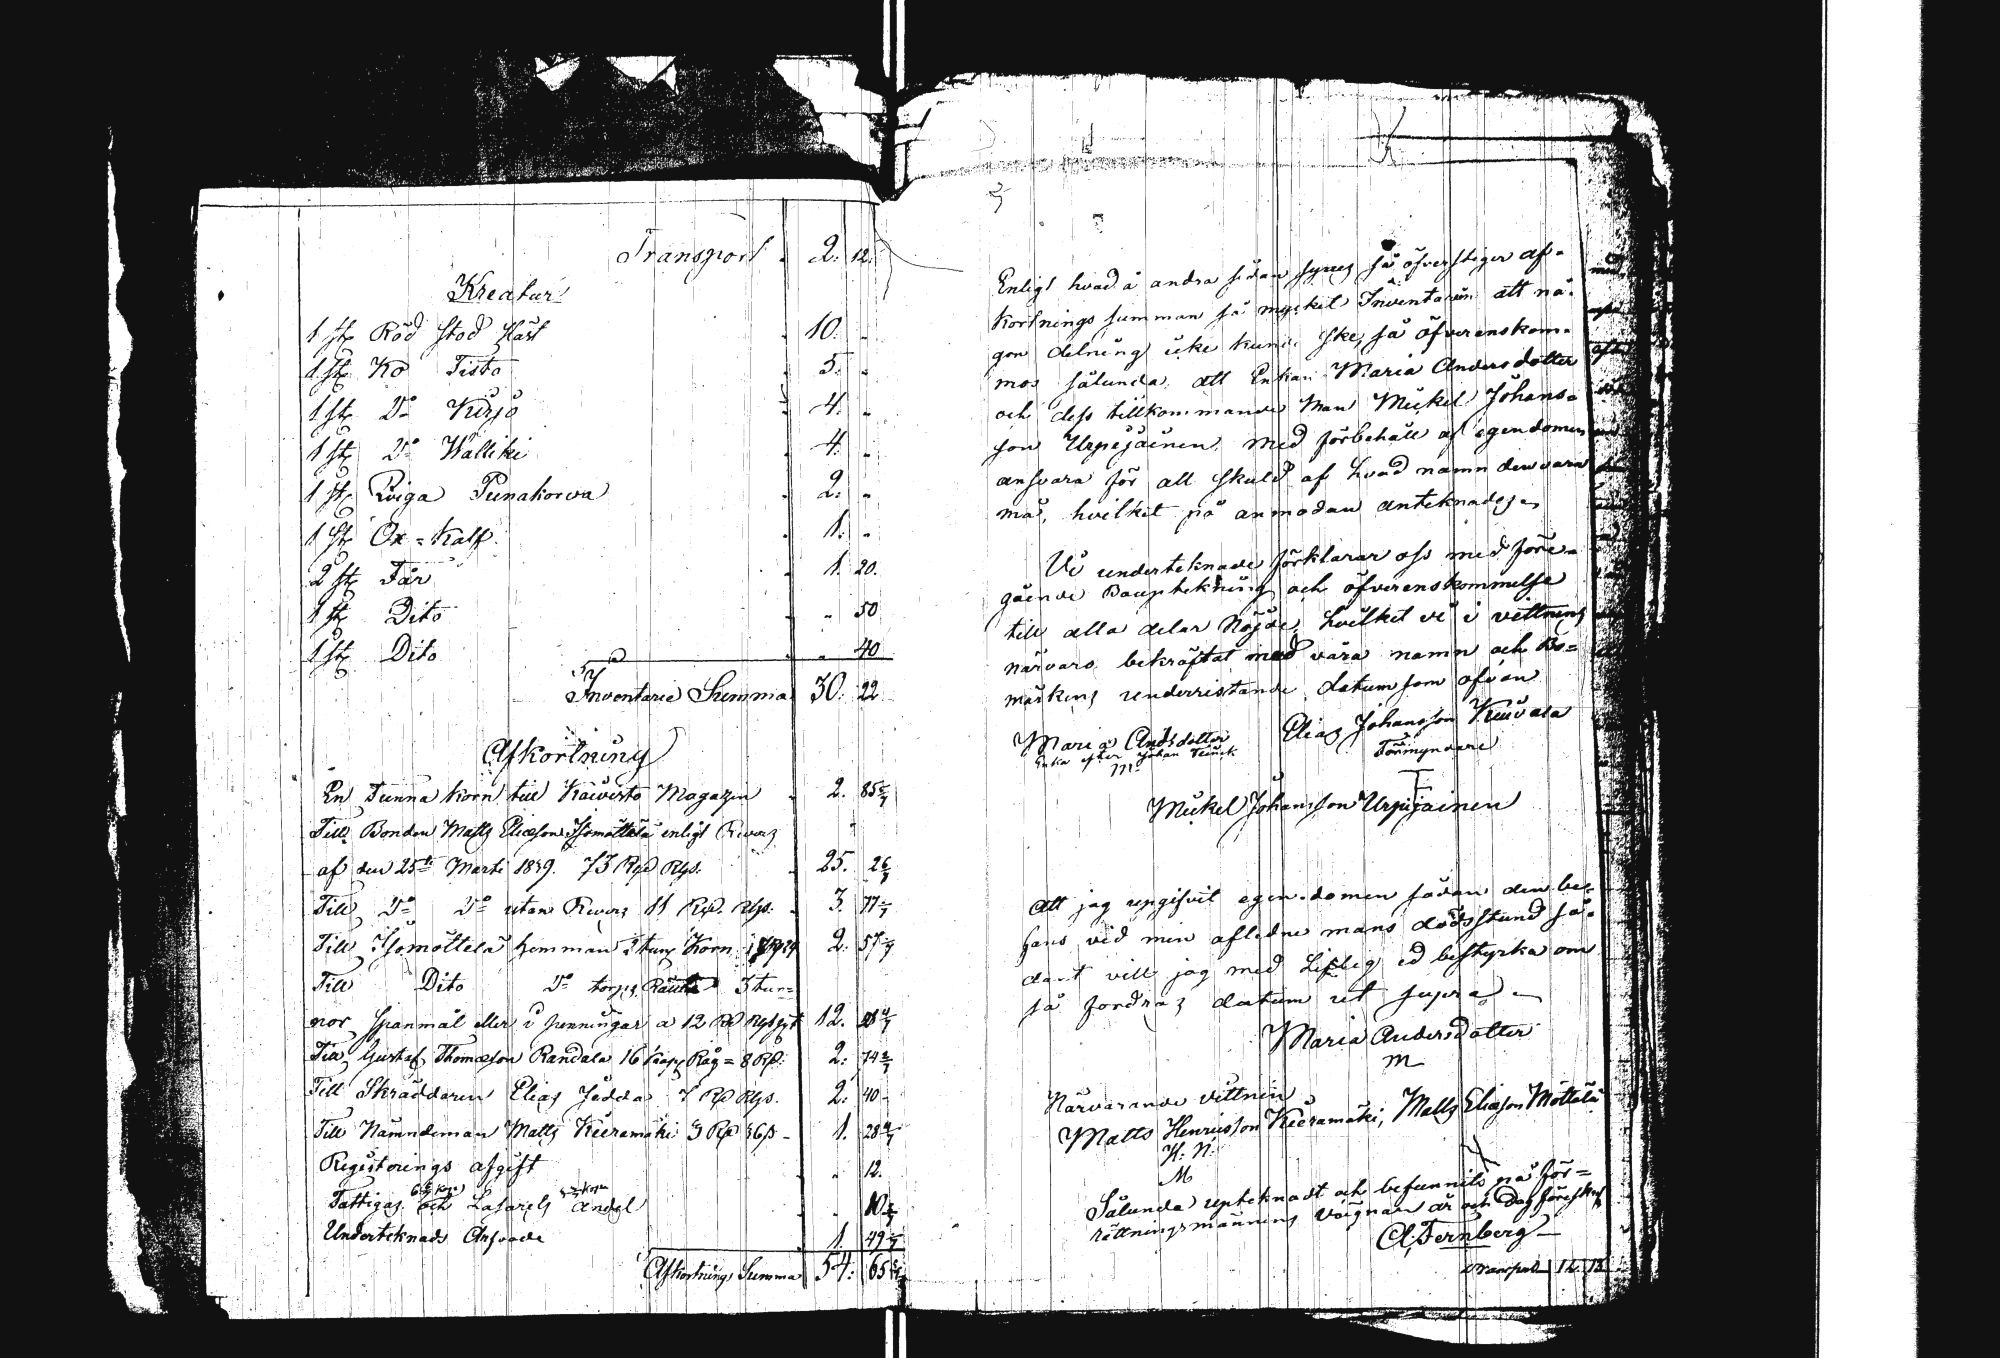 Transport . 2. 12.
Kreatur
1 st. Röd stod Häst . 10. "
1 st. Ko Tisto 5. "
1 st. Do Kirjo . 4. "
1 st. Do Walliki . 4. "
1 st. Qviga Punakorva . 2. "
1 st. Ox-Kalf . 1. "
2 st. Får . 1. 20.
1 st. Dito . " 50
1 st. Dito . " 40
Inventarie Summa 30. 22
Afkortning
En Tunna korn till Koivisto Magazin . 2. 85 5/7
Till Bonden Matts Eliasson Isomöttölä enligt Revers
af den 25te Marti 1839. 73 Rp Rgs. . 25. 2 6/7
Till Do Do utan Revers 11 Rp. Rgs. . 3. 77 1/7
Till Isomöttölä hemman 2 tunr Korn 2. 57 1/7
Till Dito Do torp 3 tun=
nor spanmål eller i penningar a 12 12.
Till Gustaf Thomasson Randala 16 kapp Råg = 8 Rp. 2. 74 2/7
Till Skräddaren Elias Jädda 7 Rp Rgs. 2. 40 -
Till Nämndeman Matts Kieramäki 3 Rp 36 s - 1. 28 4/7
Registerings afgift . " 12.
Fattigas och Lasarets andel . "
Underteknads Arfvode 1. 49 1/7
Afkortnings Summa 54. 65
Enligt hvad å andra sidan synes så öfverstiger af-
kortnings summan så myckel Inventarium att nå-
gon delning icke kunde ske, så öfverenskom-
mos sålunda, att Enkan Maria Andersdotter
och dess tillkommande man Mickel Johans-
son Urpijainen, med förbehåll af egendomen
ansvara för all skuld af hvad namn den vara
må, hvilket på anmodan anteknades.
Vi underteknade förklarar oss med före-
gående Boupteknings och öfverenskommelse
till alla delar nöjde, hvilket vi i vittnens
närvaro bekräftat med våra namn och Bo=
märkens underristande datum som ofvan
Maria Andsdotter Elias Johansson Kuivala
Enka efter Johan Förmyndare
m
Mickel Johansson Urpijainen
Att jag uppgifvit egendomen sådan den be-
fans vid min afledne mans dödsstund så-
dant vill jag med Liflig ed bestyrka om
så fordras datum ut supra.
Maria Andersdotter
m
Närvarande vittnen
Matts Henricsson Kieramäki, Matts Eliasson Möttölä
K. N.
M
Sålunda upteknadt och befunnits på för=
rättningsmannens vägnar år och dag föreskref
A. Fernberg
Transport 12. 12